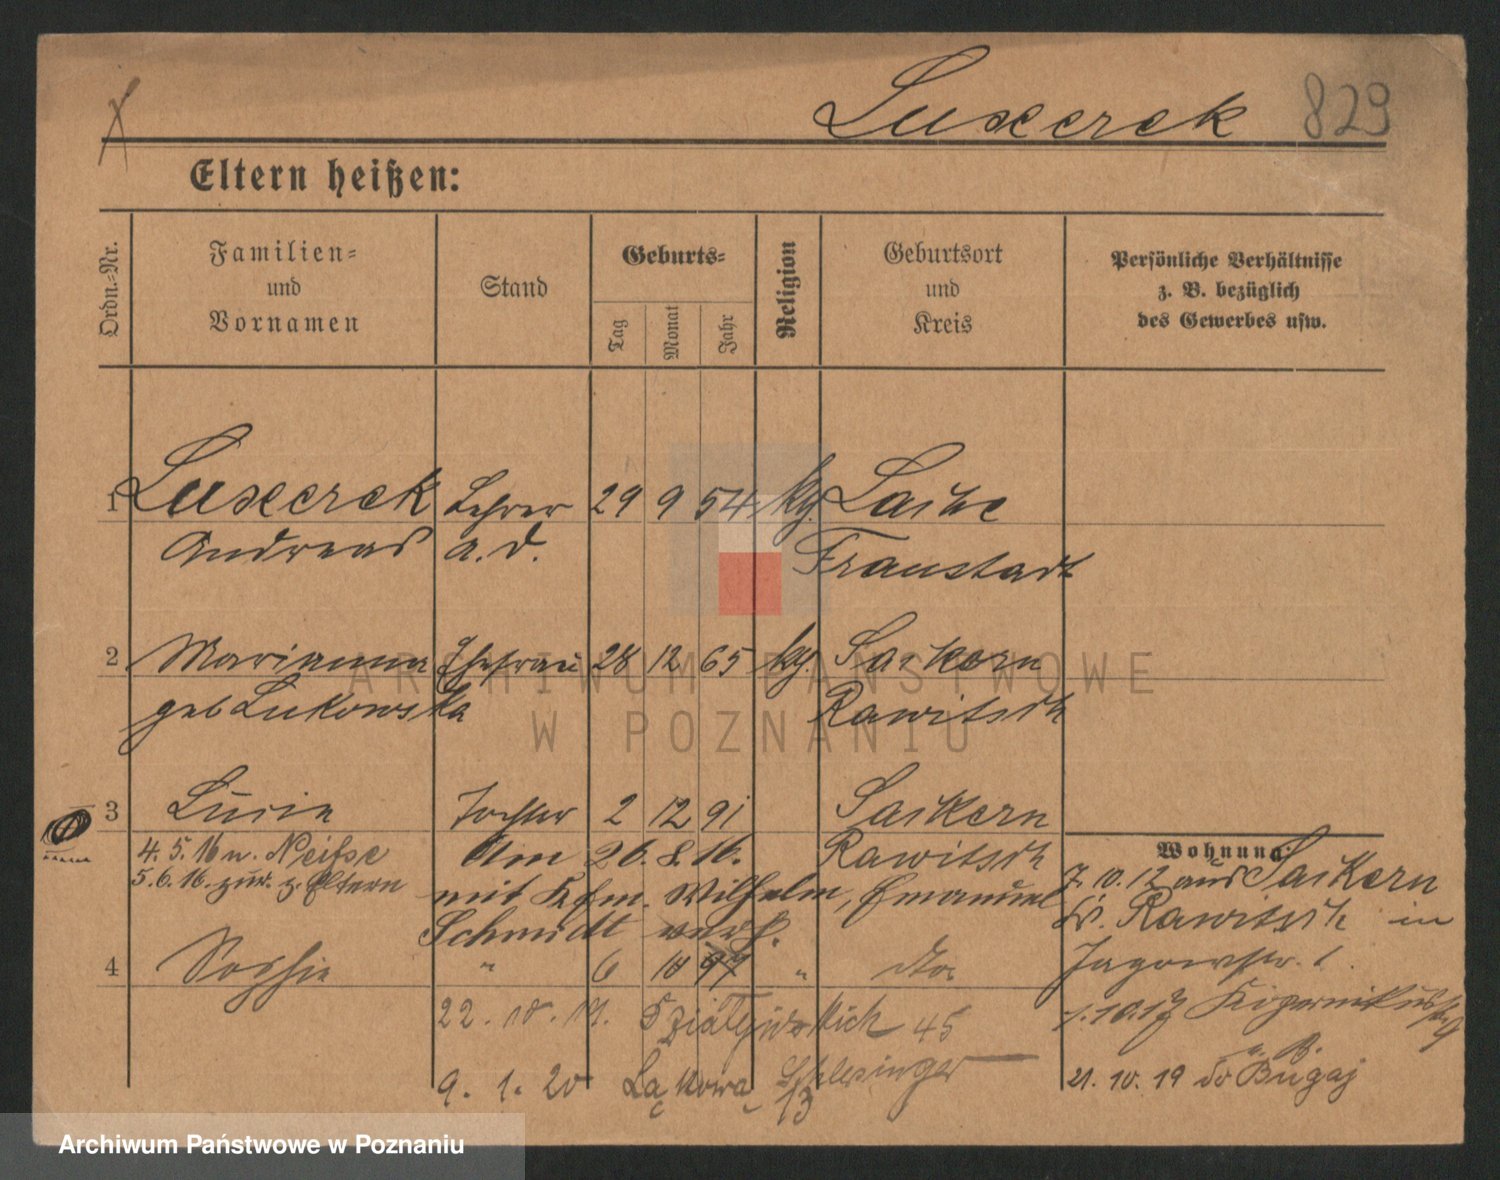 Luxerek 829
Eltern heißen:
Ordn.-Nr.
Familien-
und
Vornamen
Stand
Geburts-
Tag
Monat
Jahr
Religion
Geburtsort
und
Kreis
Persönliche Verhältnisse
z. B. bezüglich
des Gewerbes usw.
1 Luxerek Lehrer 29 9 54 kg. Laihe
Andreas a. D. Fraustadt
2 Marianna Ehefrau 28 12 65 kg. Saikern
geb Lukowska Rawitsch
3 Luzie Tochter 2 12 91 Saikern
4. 5. 16 n. Neisse Am 26. 8. 16. Rawitsch
5. 6. 16. zur. z. Eltern mit Kfm. Wilhelm, Emanuel
Schmidt verh.
4 Sophie " 6 10 97 " dto
22. 10. 17. 45
9. 1. 20 Łąkowa 13 Schlesinger
Wohnung
7. 10. 12 aus Saikern
Kr. Rawitsch in
Jagowstr. 1.
1. 10. 17
21. 10. 19 do Bugaj
ARCHIWUM PAŃSTWOWE
W POZNANIU
Archiwum Państwowe w Poznaniu